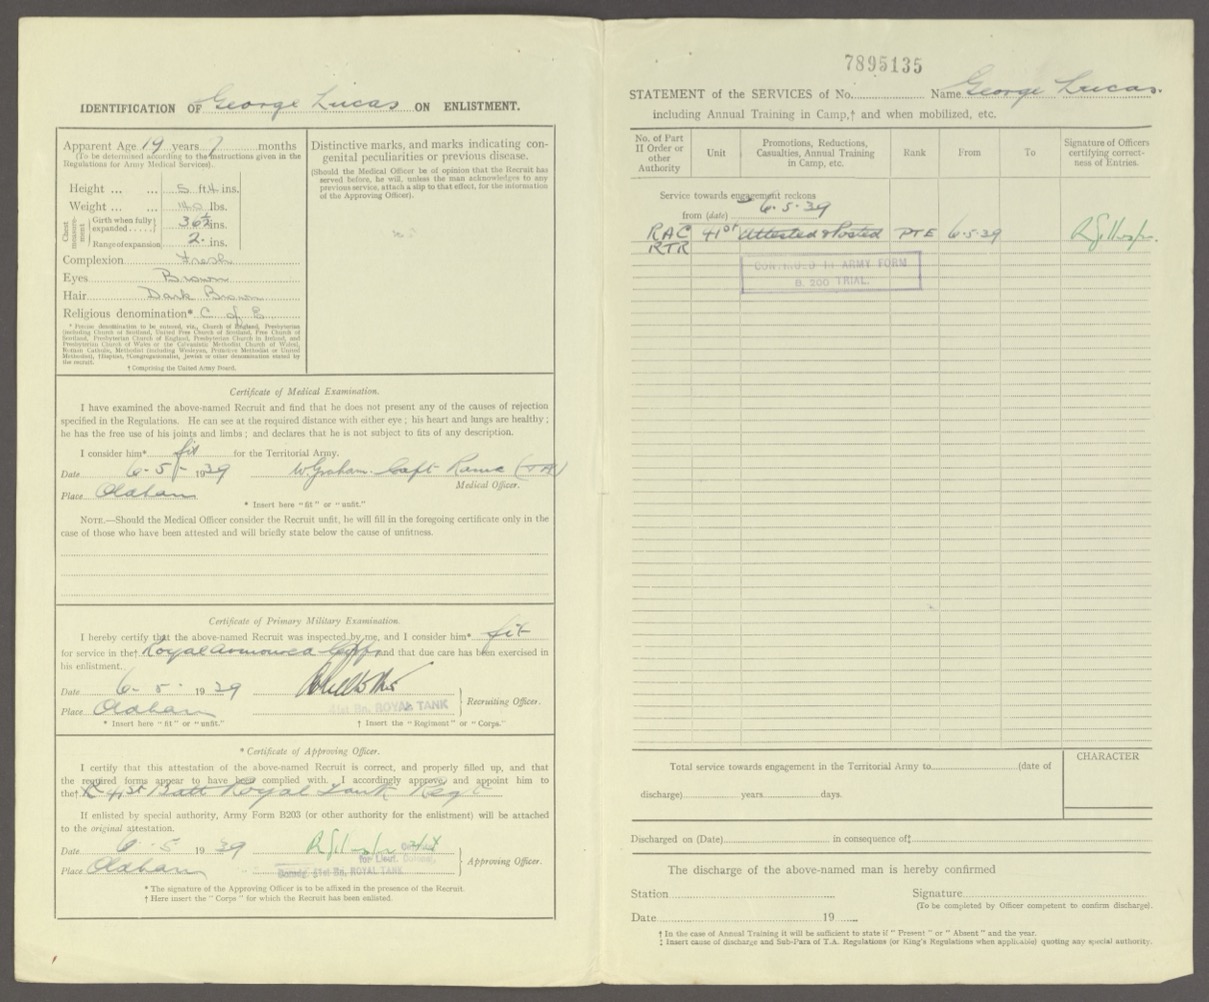 IDENTIFICATION OF George Lucas ON ENLISTMENT.
Apparent Age 19 years 7 months
(To be determined according to the instructions given in the
Regulations for Army Medical Services).
Height ... ... 5 ft. 4 ins.
Weight ... ... 140 lbs.
Chest measurement
Girth when fully
expanded . . . . . 36½ ins.
Range of expansion 2. ins.
Complexion Fresh
Eyes Brown
Hair Dark Brown
Religious denomination* C of E
* Precise denomination to be entered, viz., Church of England, Presbyterian
(including Church of Scotland, United Free Church of Scotland, Free Church of
Scotland, Presbyterian Church of England, Presbyterian Church in Ireland, and
Presbyterian Church of Wales or the Calvanistic Methodist Church of Wales),
Roman Catholic, Methodist (including Wesleyan, Primitive Methodist or United
Methodist), †Baptist, †Congregationalist, Jewish or other denomination stated by
the recruit.
† Comprising the United Army Board.
Distinctive marks, and marks indicating con-
genital peculiarities or previous disease.
(Should the Medical Officer be of opinion that the Recruit has
served before, he will, unless the man acknowledges to any
previous service, attach a slip to that effect, for the information
of the Approving Officer).
Certificate of Medical Examination.
I have examined the above-named Recruit and find that he does not present any of the causes of rejection
specified in the Regulations. He can see at the required distance with either eye; his heart and lungs are healthy;
he has the free use of his joints and limbs; and declares that he is not subject to fits of any description.
I consider him* fit for the Territorial Army.
Date 6-5- 1939 W Graham Capt Ramc (TA)
Medical Officer.
Place Oldham
* Insert here "fit" or "unfit."
NOTE.—Should the Medical Officer consider the Recruit unfit, he will fill in the foregoing certificate only in the
case of those who have been attested and will briefly state below the cause of unfitness.
Certificate of Primary Military Examination.
I hereby certify that the above-named Recruit was inspected by me, and I consider him* fit
for service in the† Royal Armoured Corps and that due care has been exercised in
his enlistment.
Date 6-5- 1939
Recruiting Officer.
Place Oldham 41st Bn. ROYAL TANK
* Insert here "fit" or "unfit." † Insert the "Regiment" or "Corps."
* Certificate of Approving Officer.
I certify that this attestation of the above-named Recruit is correct, and properly filled up, and that
the required forms appear to have been complied with. I accordingly approve, and appoint him to
the† 41st Batt Royal Tank Regt
If enlisted by special authority, Army Form B203 (or other authority for the enlistment) will be attached
to the original attestation.
Date 6-5 1939
for Lieut. Colonel,
Approving Officer.
Place Oldham Comdg. 41st Bn. ROYAL TANK
* The signature of the Approving Officer is to be affixed in the presence of the Recruit.
† Here insert the "Corps" for which the Recruit has been enlisted.
7895135
STATEMENT of the SERVICES of No. Name George Lucas.
including Annual Training in Camp,† and when mobilized, etc.
No. of Part
II Order or
other
Authority
Unit
Promotions, Reductions,
Casualties, Annual Training
in Camp, etc.
Rank
From
To
Signature of Officers
certifying correct-
ness of Entries.
Service towards engagement reckons
from (date) 6.5.39
RAC 41st Attested & Posted PTE 6-5-39
RTR
CONTINUED IN ARMY FORM
B. 200 TRIAL.
Total service towards engagement in the Territorial Army to (date of
discharge) years days.
CHARACTER
Discharged on (Date) in consequence of‡
The discharge of the above-named man is hereby confirmed
Station Signature
(To be completed by Officer competent to confirm discharge).
Date 19
† In the case of Annual Training it will be sufficient to state if "Present" or "Absent" and the year.
‡ Insert cause of discharge and Sub-Para of T.A. Regulations (or King's Regulations when applicable) quoting any special authority.